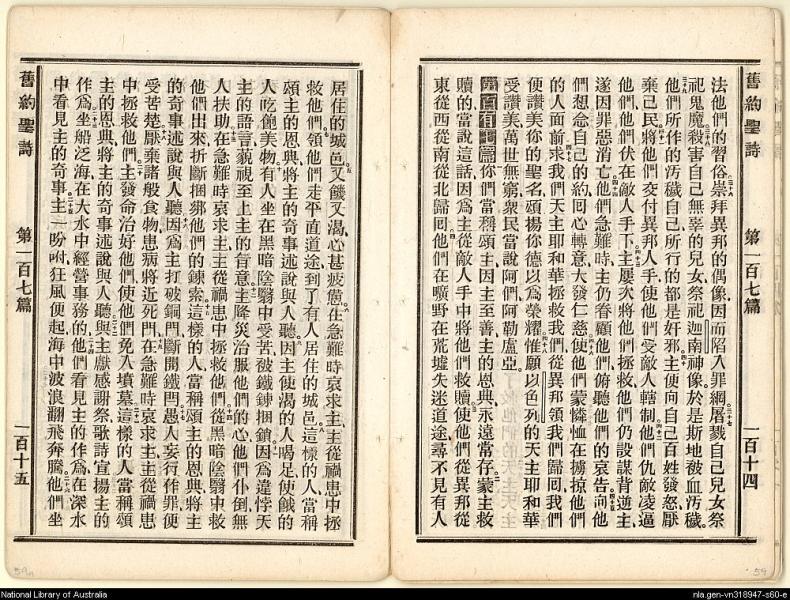 舊約聖詩 第一百七篇 一百十四
法他們的習俗崇拜異邦的偶像因而陷入罪網屠戮自己兒女祭
祀鬼魔殺害自己無辜的兒女祭祀迦南神像於是斯地被血汚穢
他們所作的汚穢自己所行的都是奸邪主便向自己百姓發怒厭
棄己民將他們交付異邦人手使他們受敵人轄制他們仇敵凌逼
他們他們伏在敵人手下主屢次將他們拯救他們仍設謀背逆主
遂因罪惡消亡他們急難時主仍眷顧他們俯聽他們的哀告向他
們想念自己的約囘心轉意大發仁慈使他們蒙憐恤在擄掠他們
的人面前求我們天主耶和華拯救我們從異邦領我們歸囘我們
便讚美你的聖名頌揚你德以爲榮耀惟願以色列的天主耶和華
受讚美萬世無窮衆民當說阿們阿勒盧亞
第一百有七篇你們當稱頌主因主至善主的恩典永遠常存蒙主救
贖的當說這話因爲主從敵人手中將他們救贖使他們從異邦從
東從西從南從北歸囘他們在曠野在荒墟失迷道途尋不見有人
舊約聖詩 第一百七篇 一百十五
居住的城邑又饑又渴心甚疲憊在急難時哀求主主從禍患中拯
救他們領他們走平直道途到了有人居住的城邑這樣的人當稱
頌主的恩典將主的奇事述說與人聽因主使渴的人喝足使餓的
人吃飽美物有人坐在黑暗陰翳中受苦被鐵鍊捆鎖因爲違悖天
主的語言藐視至上主的旨意主降災治服他們的心他們仆倒無
人扶助在急難時哀求主主從禍患中拯救他們從黑暗陰翳中救
他們出來折斷捆綁他們的鍊索這樣的人當稱頌主的恩典將主
的奇事述說與人聽因爲主打破銅門斷開鐵閂愚人妄行作罪便
受苦楚厭棄諸般食物患病將近死門在急難時哀求主主從禍患
中拯救他們主發命治好他們使他們免入墳墓這樣的人當稱頌
主的恩典將主的奇事述說與人聽與主獻感謝祭歌詩宣揚主的
作爲坐船泛海在大水中經營事務的他們看見主的作爲在深水
中看見主的奇事主一吩咐狂風便起海中波浪翻飛奔騰他們坐
59
National Library of Australia
nla.gen-vn318947-s60-e